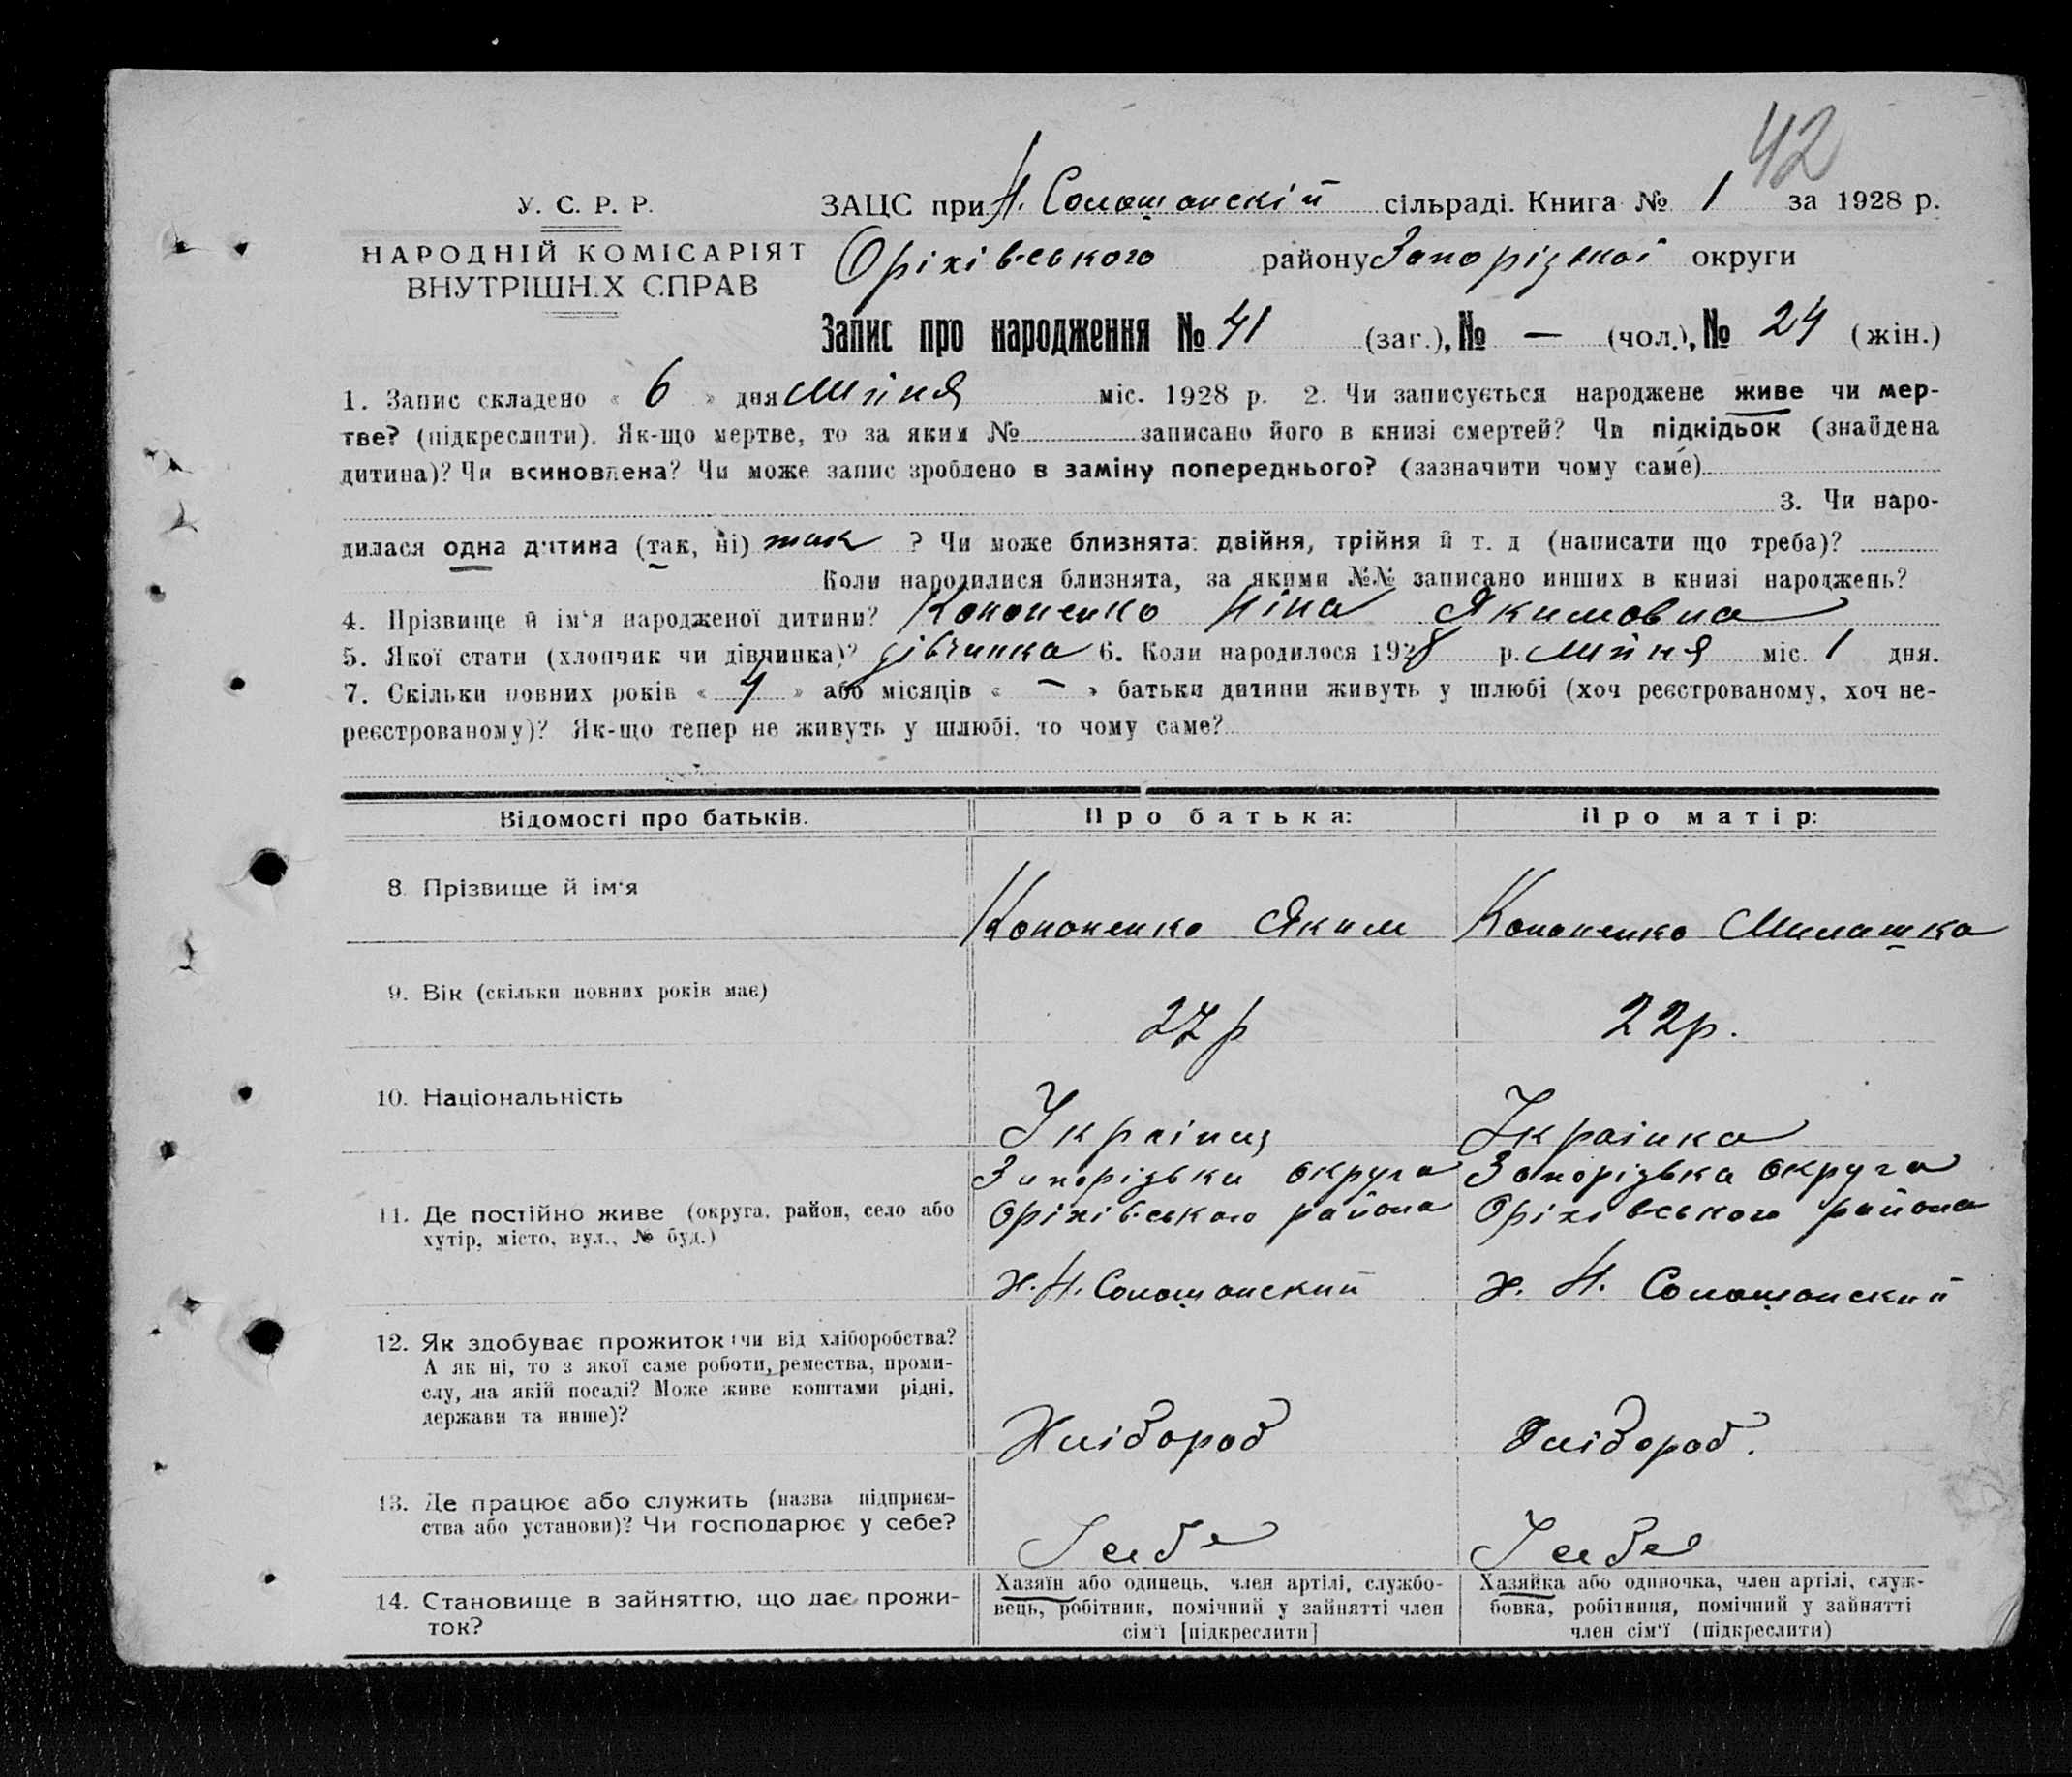 42
У. С. Р. Р.
НАРОДНІЙ КОМІСАРІЯТ
ВНУТРІШНІХ СПРАВ
ЗАЦС при Н. Солошанскій сільраді. Книга № 1 за 1928 р.
Оріхівського району Запорізкої округи
Запис про народження № 41 (заг.), № — (чол.), № 24 (жін.)
1. Запис складено « 6 » дня міс. 1928 р. 2. Чи записується народжене живе чи мер-
тве? (підкреслити). Як-що мертве, то за яким № записано його в книзі смертей? Чи підкідьок (знайдена
дитина)? Чи всиновлена? Чи може запис зроблено в заміну попереднього? (зазначити чому саме)
3. Чи наро-
дилася одна дитина (так, ні) так ? Чи може близнята: двійня, трійня й т. д (написати що треба)?
Коли народилися близнята, за якими №№ записано инших в книзі народжень?
4. Прізвище й ім‘я народженої дитини? Кононенко Ніна Якимовна
5. Якої стати (хлопчик чи дівчинка)? дівчинка 6. Коли народилося 1928 р. міс. 1 дня.
7. Скільки повних років « 4 » або місяців « — » батьки дитини живуть у шлюбі (хоч реєстрованому, хоч не-
реєстрованому)? Як-що тепер не живуть у шлюбі, то чому саме?
Відомості про батьків. Про батька: Про матір:
8. Прізвище й ім‘я
Кононенко Яким Кононенко Милашка
9. Вік (скільки повних років має)
27р 22р.
10. Національність
Українц Українка
Запорізька округа Запорізька округа
11. Де постійно живе (округа, район, село або Оріхівського района Оріхівського района
хутір, місто, вул., № буд.)
х. Н. Солошанский х. Н. Солошанский
12. Як здобуває прожиток (чи від хліборобства?
А як ні, то з якої саме роботи, ремества, проми-
слу, на якій посаді? Може живе коштами рідні,
держави та инше)?
Хлібороб Хлібороб.
13. Де працює або служить (назва підприєм-
ства або установи)? Чи господарює у себе?
У себе У себе
14. Становище в зайняттю, що дає прожи-
ток?
Хазяїн або одинець, член артілі, службо-
вець, робітник, помічний у зайнятті член
сім‘ї [підкреслити]
Хазяйка або одиночка, член артілі, служ-
бовка, робітниця, помічний у зайнятті
член сім‘ї (підкреслити)